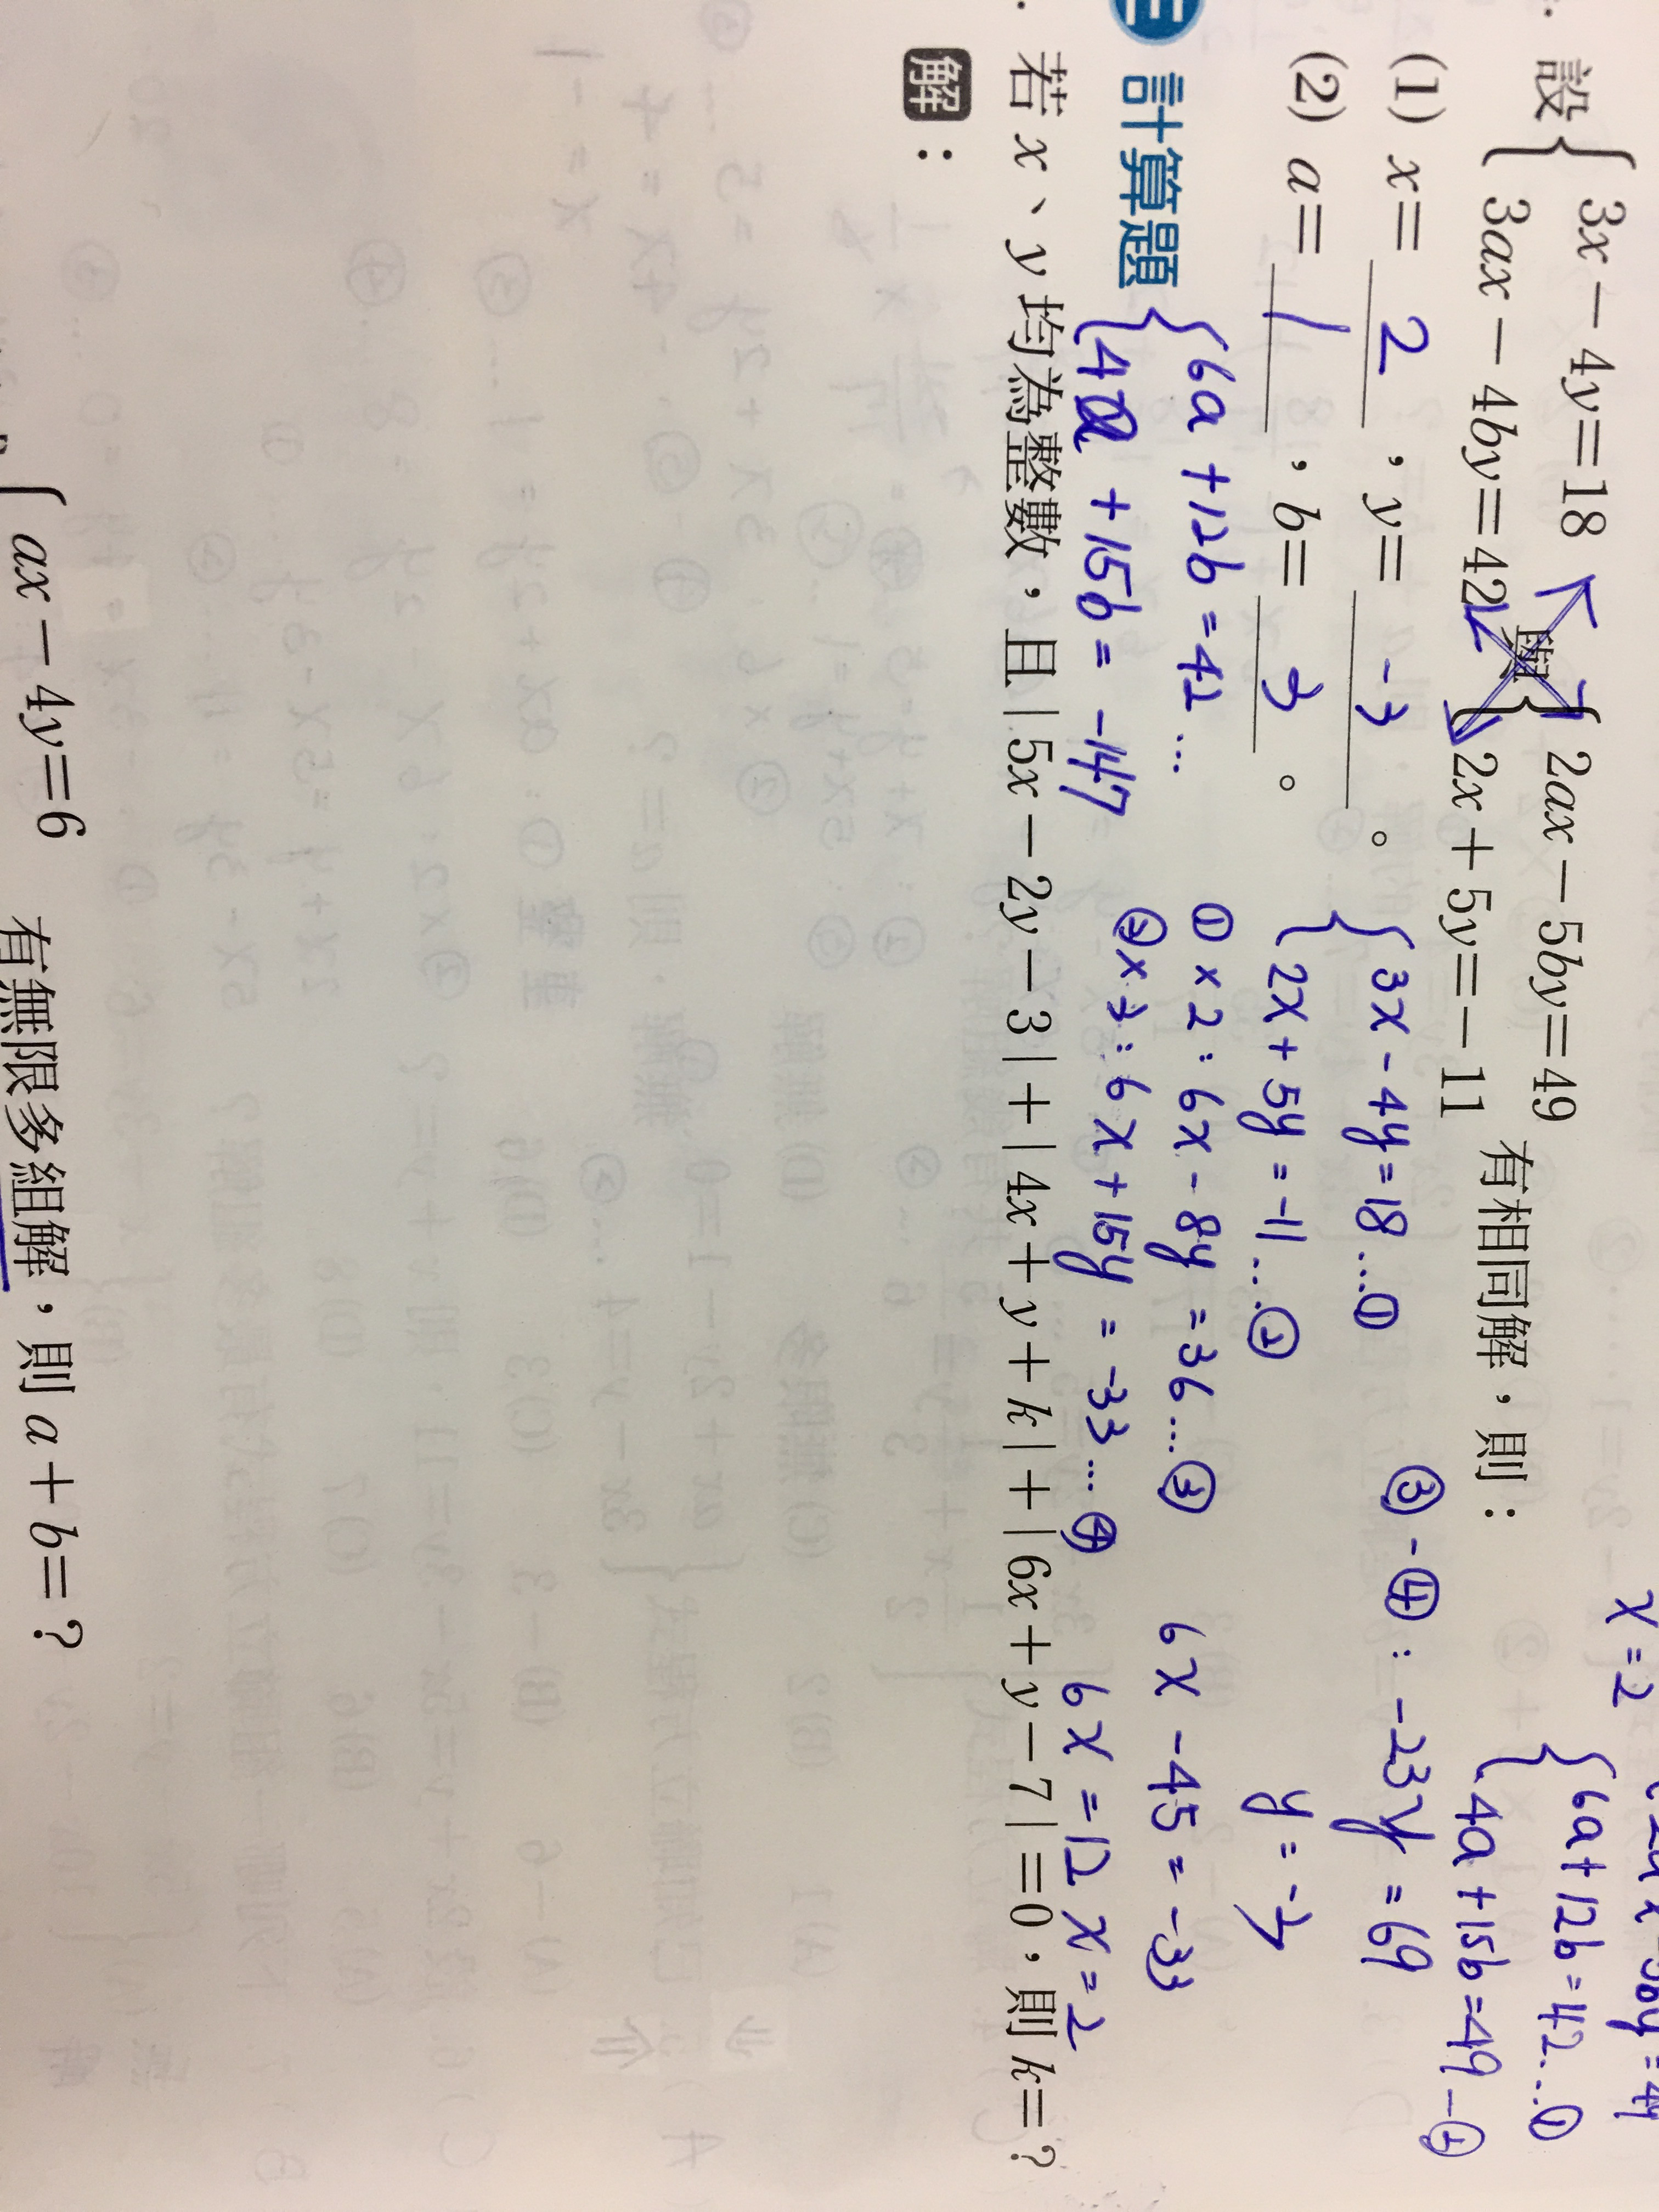 設{3x－4y＝18 與 {2ax－5by＝49
{3ax－4by＝42 {2x＋5y＝－11 有相同解，則：
(1) x＝ 2 ，y＝ -3 。
(2) a＝ 1 ，b＝ 3 。
{3x - 4y = 18 ... ①
{2x + 5y = -11 ... ②
① x 2 : 6x - 8y = 36 ... ③
② x 3 : 6x + 15y = -33 ... ④
③ - ④ : -23y = 69
y = -3
6x - 45 = -33
6x = 12 x = 2
x = 2
{6a + 12b = 42 ... ①
{4a + 15b = 49 - ②
{6a + 12b = 42 ...
+ 15b = -147
計算題
. 若 x、y 均為整數，且｜5x－2y－3｜＋｜4x＋y＋k｜＋｜6x＋y－7｜＝0，則 k＝？
解：
{ax－4y＝6
有無限多組解，則 a＋b＝？